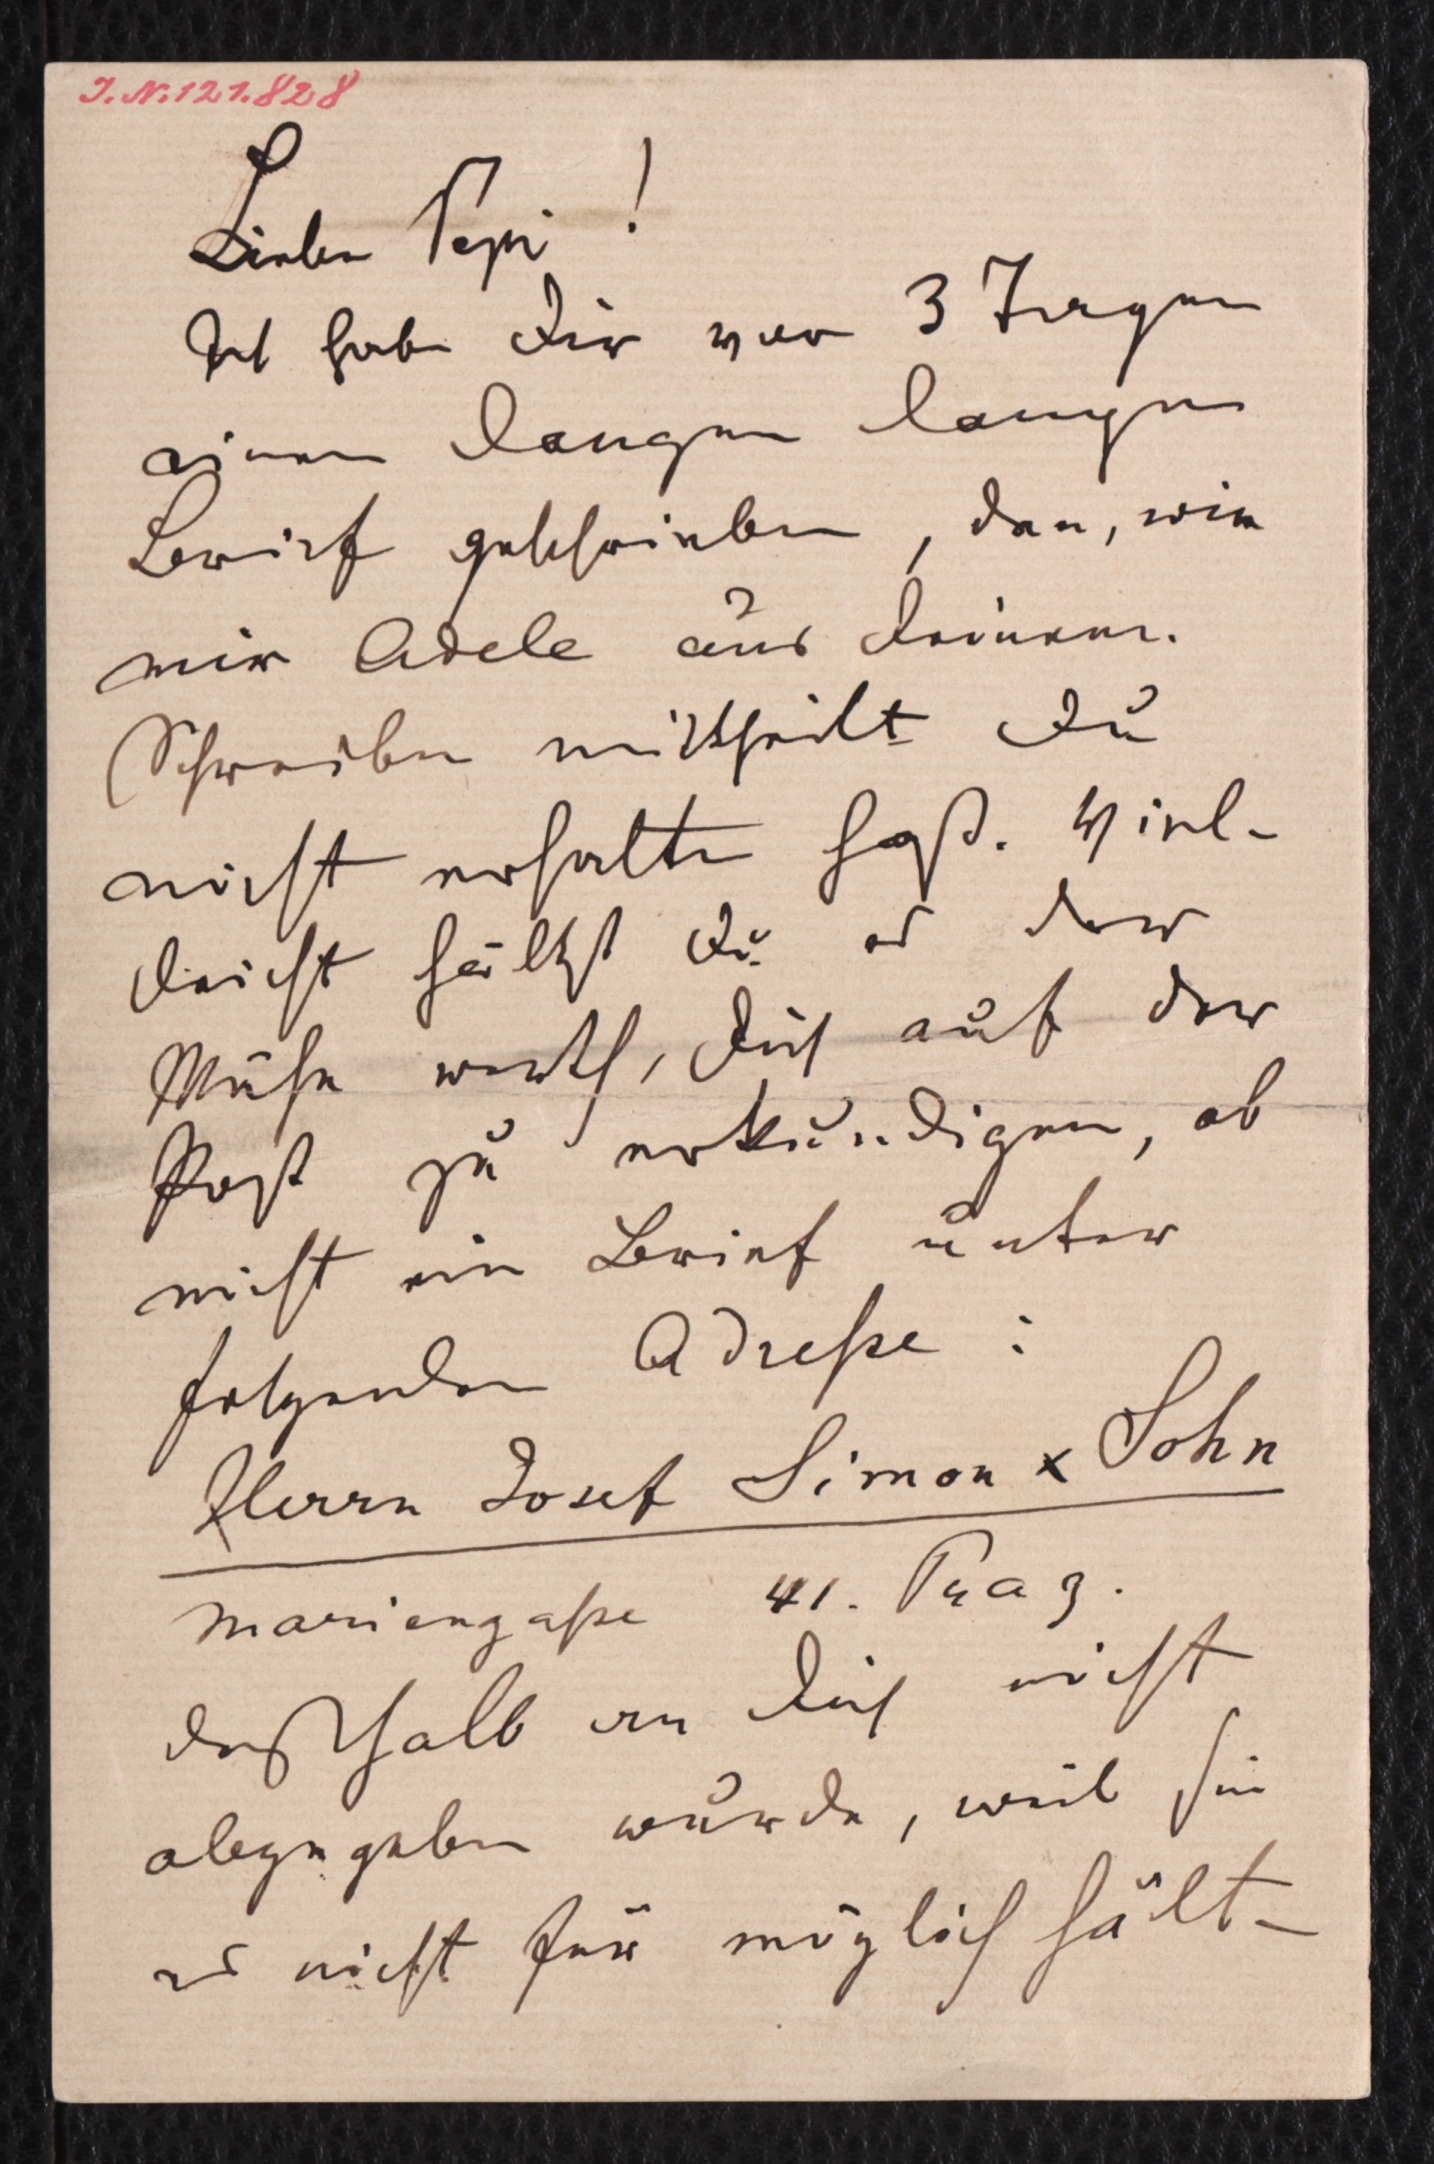 J.N. 121.828
Lieber Pepi!
Ich habe Dir vor 3 Tagen
einen langen langen
Brief geschrieben, den, wie
mir Adele aus Deinem
Schreiben mittheilt Du
nicht erhalten hast. Viel-
leicht hältst Du es der
Mühe werth, Dich auf der
Post zu erkundigen, ob
nicht ein Brief unter
folgender Adreße:
Herrn Josef Simon & Sohn
Mariengaße 41. Prag.
deßhalb an Dich nicht
abgegeben wurde, weil sie
es nicht für möglich hält-